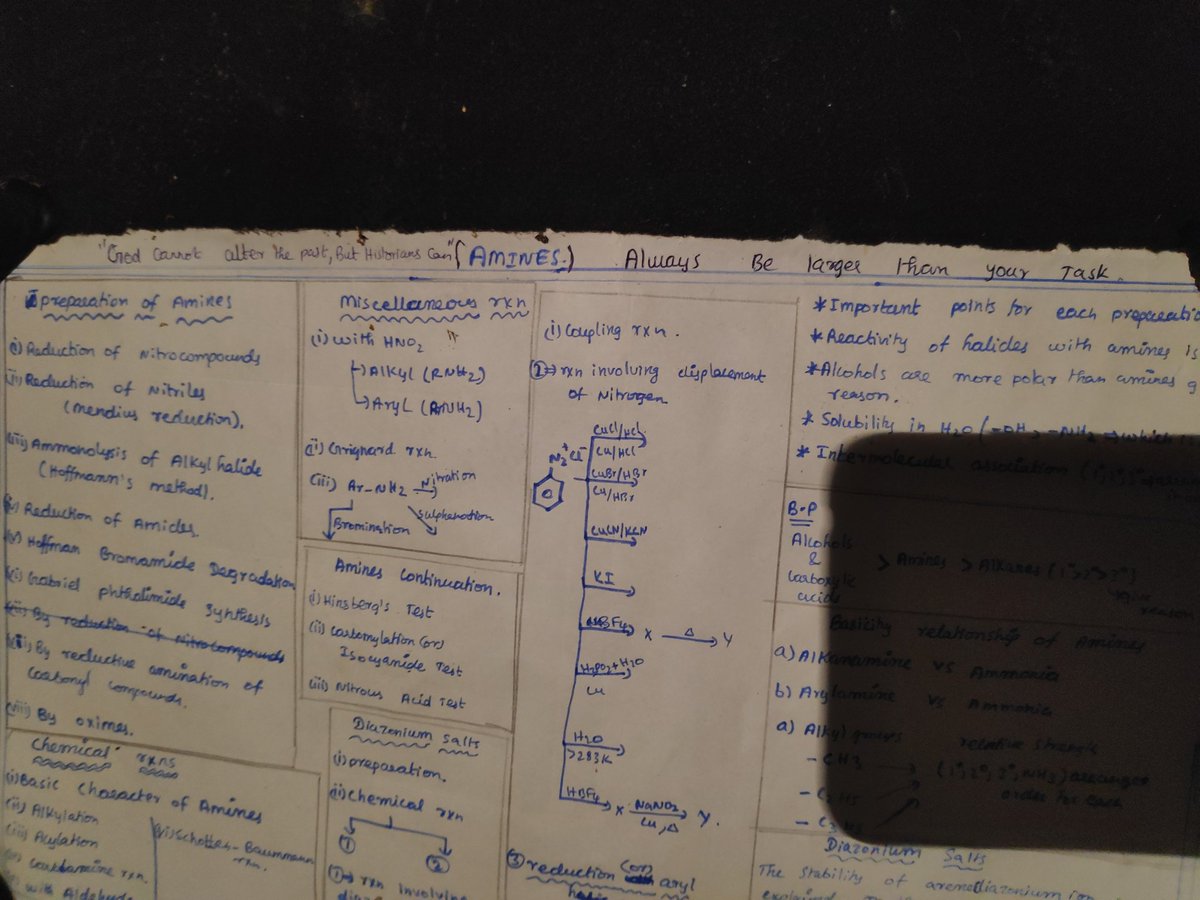 "God Cannot alter the past, But Historians Can" (AMINES.) Always Be larger than your Task.
preparation of Amines
(i) Reduction of Nitrocompounds
(ii) Reduction of Nitriles
(mendius reduction).
(iii) Ammonolysis of Alkyl halide
(Hoffmann's method).
Reduction of Amides.
(v) Hoffman Bromamide Degradation
Gabriel phthalimide synthesis
By reduction of Nitrocompounds
By reductive amination of
Carbonyl compounds.
(viii) By oximes.
Chemical rxns
(i) Basic Character of Amines
(ii) Alkylation
(iii) Acylation
Carbylamine rxn.
with Aldehyde
(vi) Schotten-Baummann
rxn.
Miscellaneous rxn
(i) with HNO2
→ Alkyl (RNH2)
→ Aryl (ArNH2)
(ii) Grignard rxn.
(iii) Ar-NH2 Nitration
Sulphonation
Bromination
Amines Continuation.
(i) Hinsberg's Test
(ii) Carbomylation (or)
Isocyanide Test
(iii) Nitrous Acid Test
Diazonium Salts
(i) preparation.
(ii) chemical rxn
① ②
①⇒ rxn involving
(i) Coupling rxn.
②⇒ rxn involving displacement
of Nitrogen
N2+Cl-
CuCl/HCl
Cu/HCl
CuBr/HBr
Cu/HBr
CuCN/KCN
KI
HBF4 → X Δ → Y
H3PO2+H2O
Cu
H2O
>283K
HBF4 → X NaNO2 → Y.
Cu, Δ
③ reduction (or) aryl
* Important points for each
* Reactivity of halides with amines is
* Alcohols are more polar than amines
reason.
* Solubility in H2O
* Intermolecular association
B.P
Alcohols
&
Carboxylic
acids
> Amines > Alkanes (1°>2°>3°)
reason
Basicity relationship of Amines
a) Alkanamine vs Ammonia
b) Arylamine vs Ammonia
a) Alkyl groups relative strength
- CH3 → (1°, 2°, 3°, NH3) arranged
- C2H5 order for each
Diazonium Salts
The stability of arenediazonium